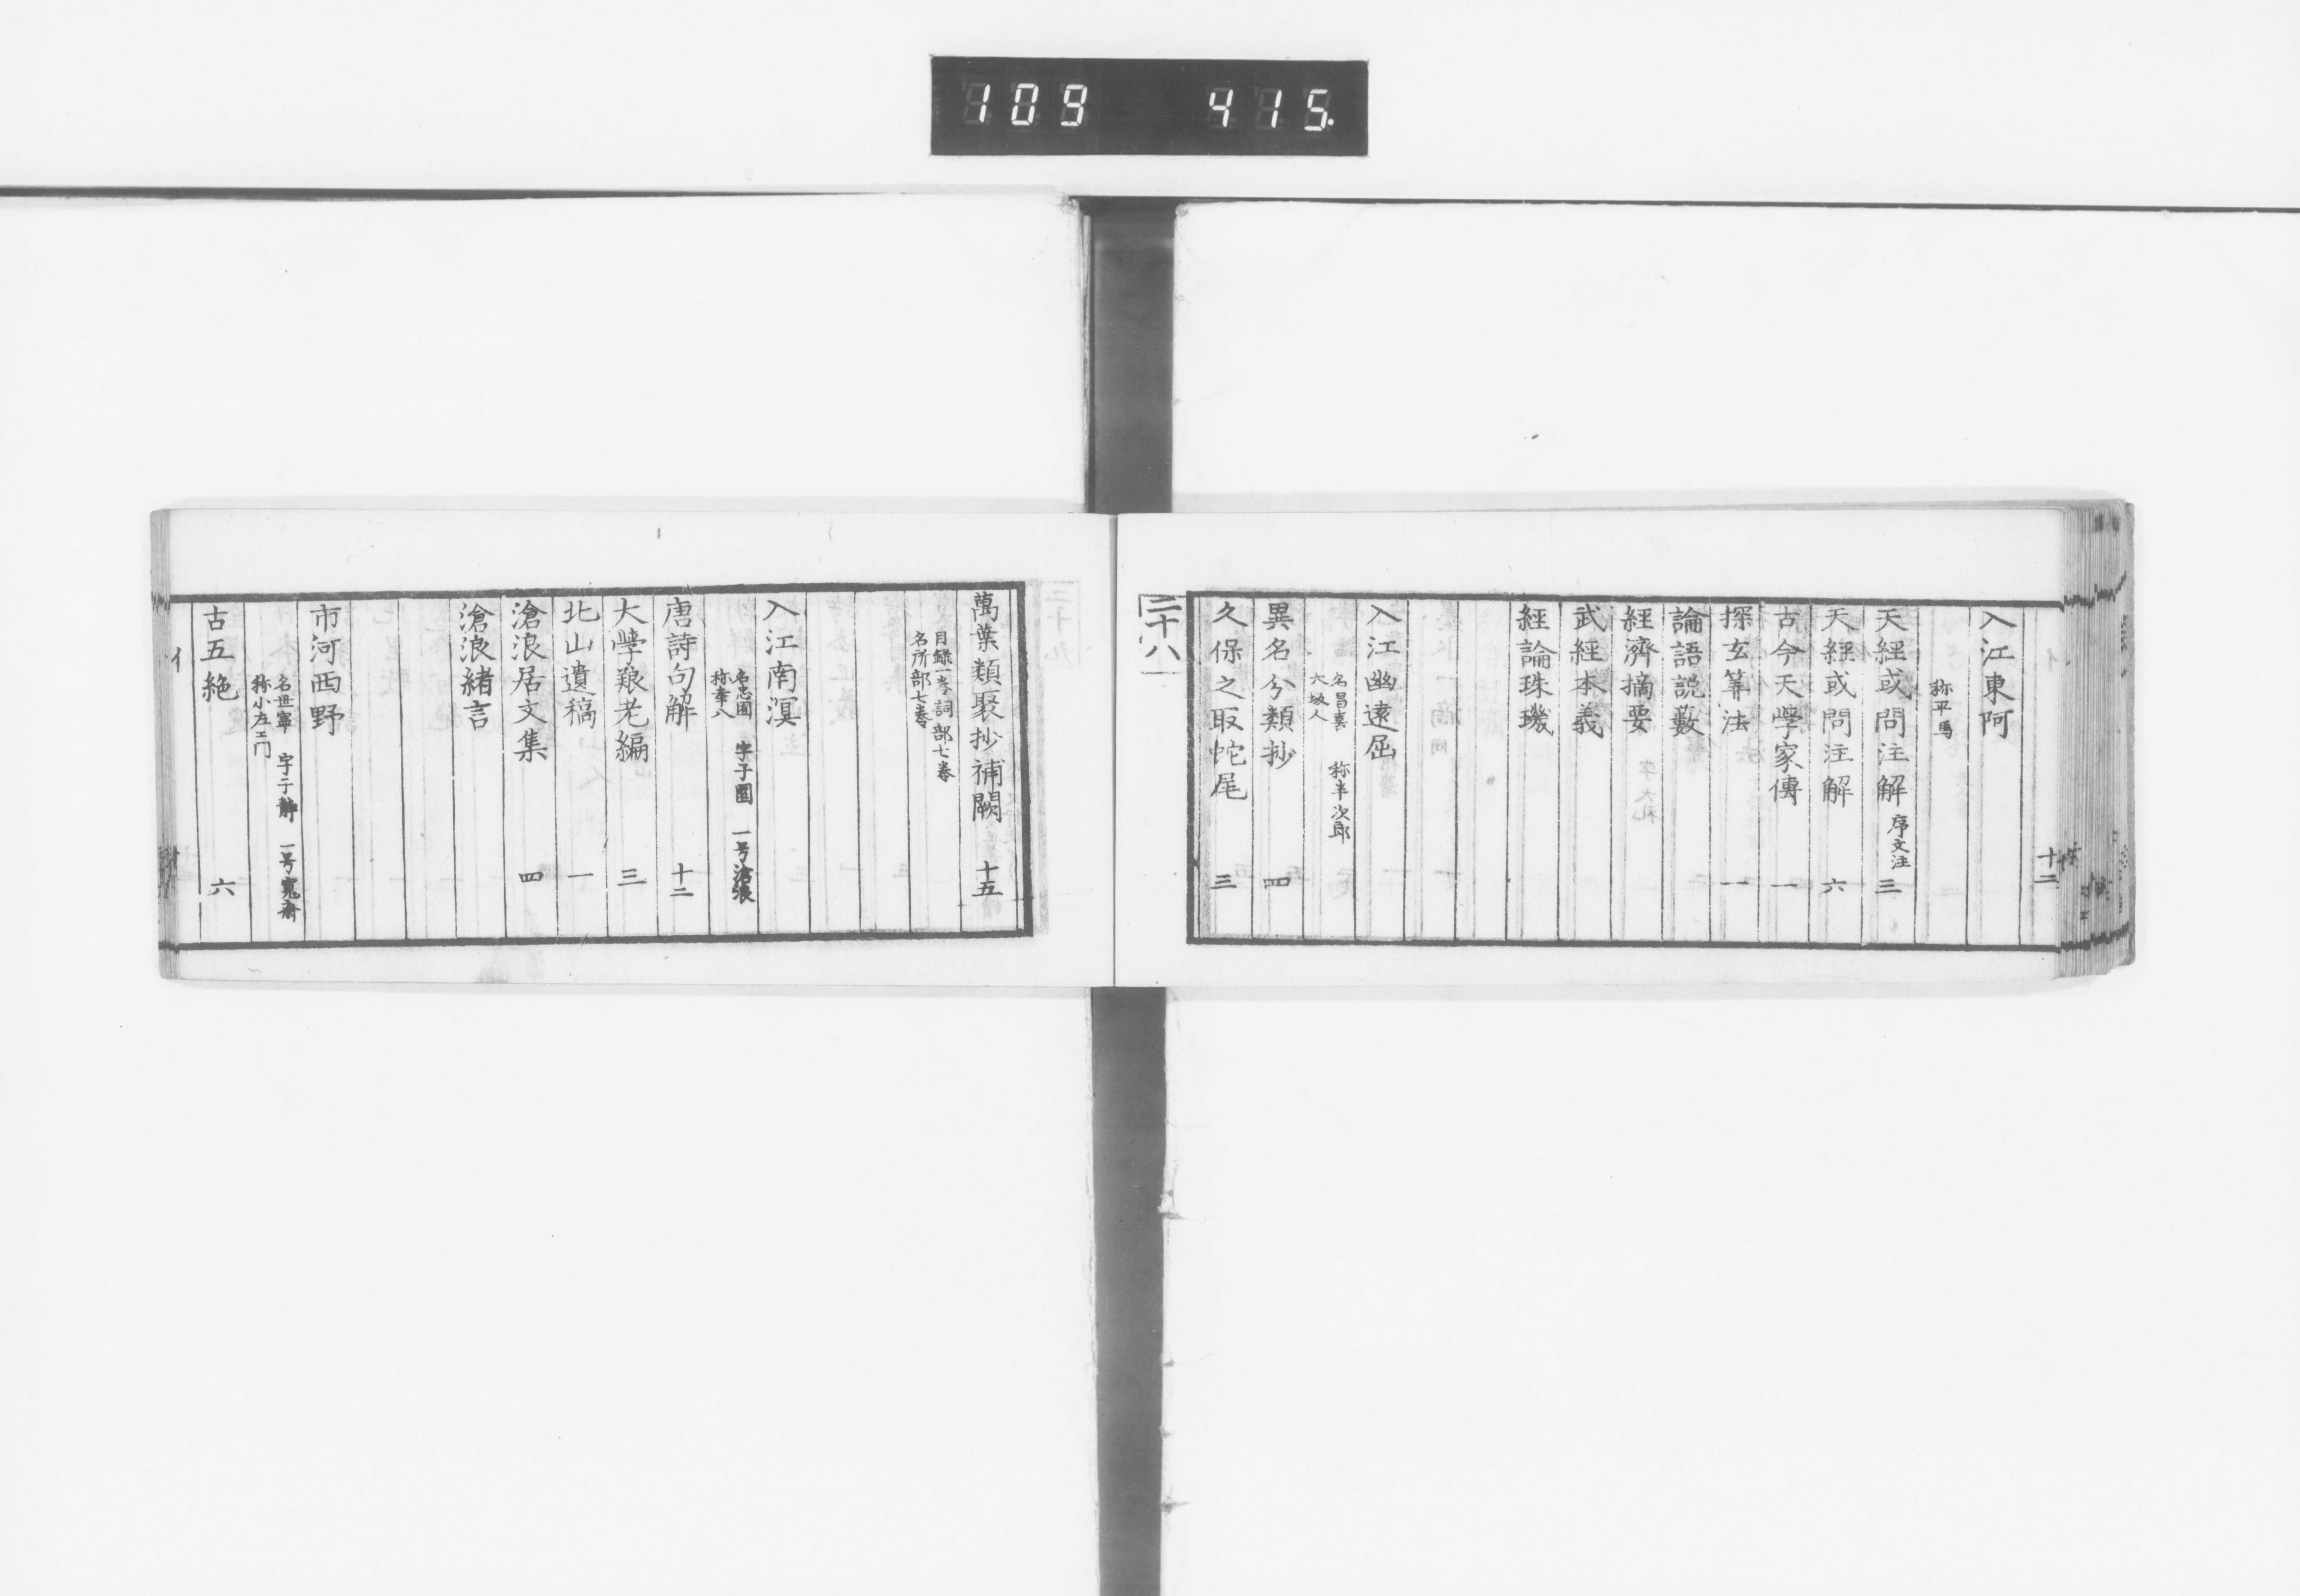 109 415.
十二
入江東阿
称平馬
天經或問注解 序文注 三
天經或問注解 六
古今天學家傳 一
探玄筭法 一
論語説藪
經濟摘要
武經本義
經論珠璣
入江幽遠屈
名昌喜 称半次郎
大坂人
異名分類抄 四
久保之取蛇尾 三
二十八
萬葉類聚抄補闕 十五
目録一巻 詞部七巻
名所部七巻
入江南溟
名忠囿 字子園 一号滄浪
称幸八
唐詩句解 十二
大學艱老編 三
北山遺稿 一
滄浪居文集 四
滄浪緒言
市河西野
名世寧 字子静 一号寛斎
称小左エ門
古五絶 六
イ